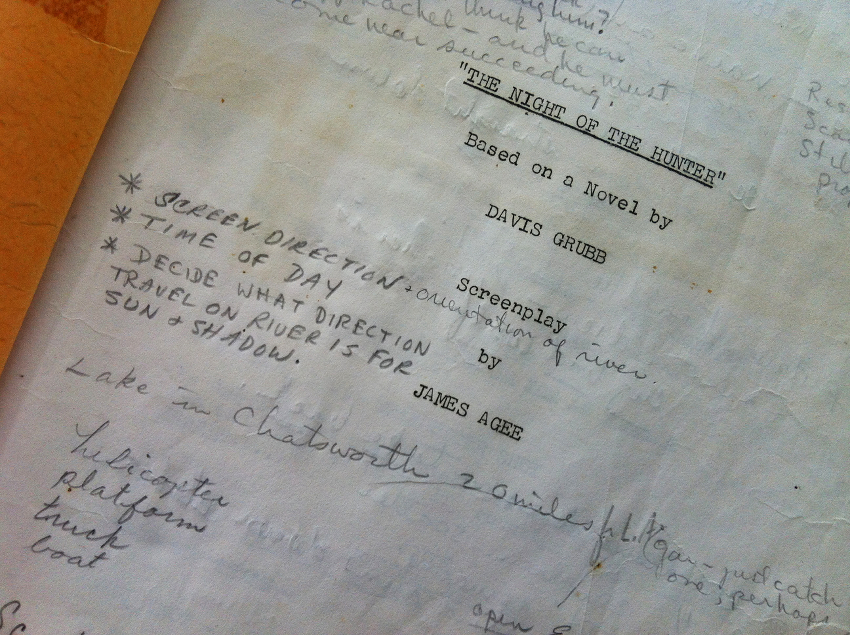 him?
Rachel - and think he can
come near succeeding. he must
"THE NIGHT OF THE HUNTER"
Based on a Novel by
DAVIS GRUBB
Screenplay
by
JAMES AGEE
* SCREEN DIRECTION + orientation of river.
* TIME OF DAY
* DECIDE WHAT DIRECTION
TRAVEL ON RIVER IS FOR
SUN + SHADOW.
Lake in Chatsworth 20 miles fr L.A.
helicopter
platform
truck
boat
just catch
one; perhaps
open